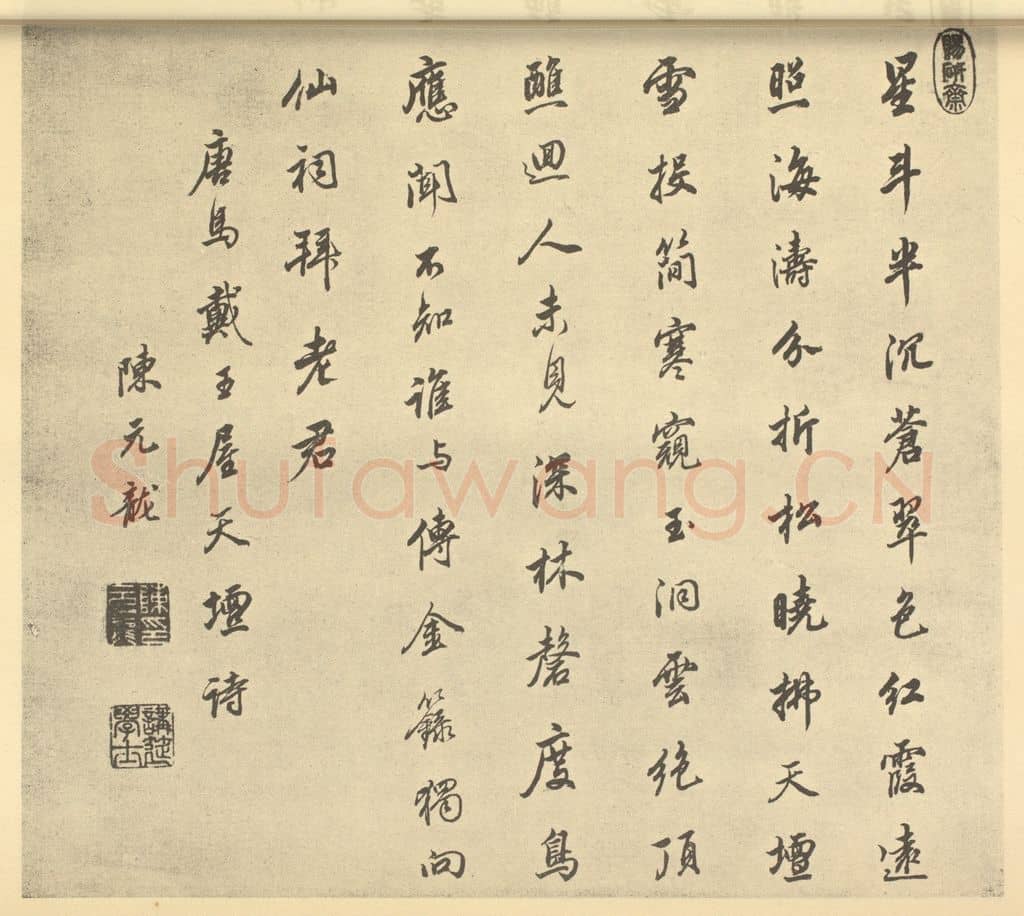 賜研齋
星斗半沉蒼翠色紅霞遠
照海濤分折松曉拂天壇
雪投簡寒窺玉洞雲絶頂
醮迴人未見深林磬度鳥
應聞不知誰与傳金籙獨向
仙祠拜老君
唐馬戴王屋天壇诗
陳元龍
陳印元龍
講筵學士
Shufawang.CN